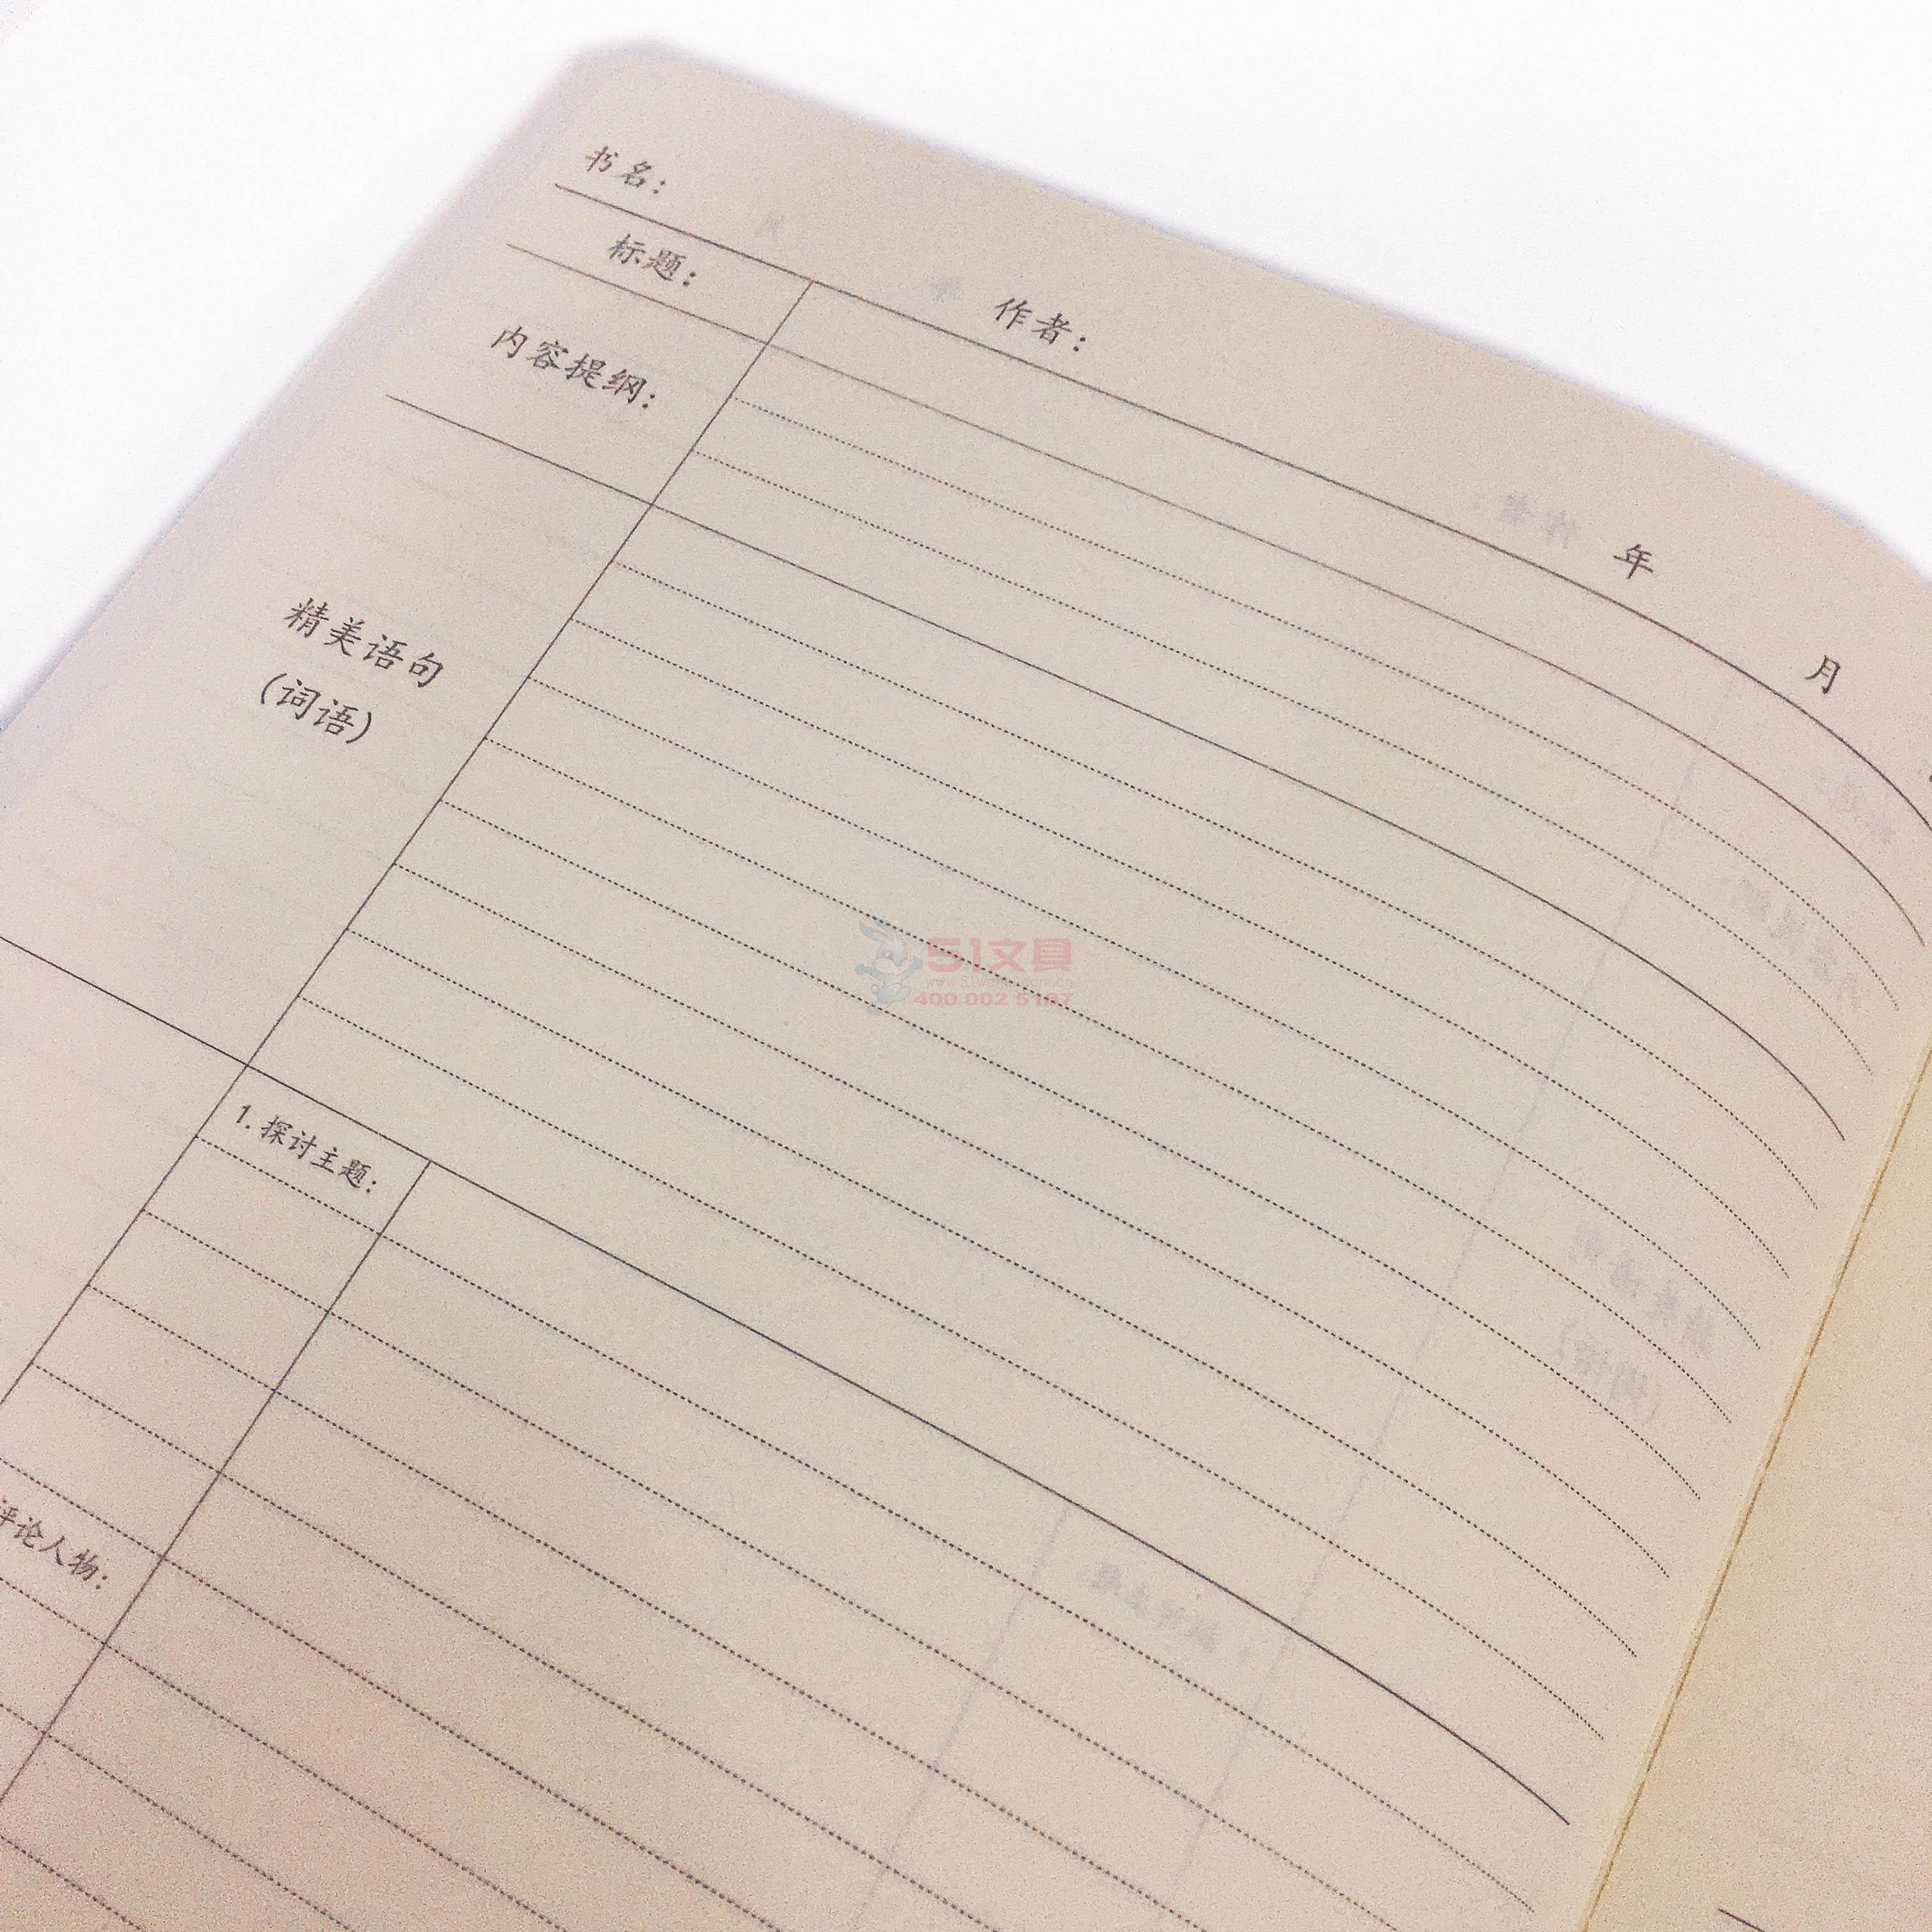 书名： 作者： 年 月
标题：
内容提纲：
精美语句
(词语)
51文具
400 002 5187
1. 探讨主题：
评论人物：